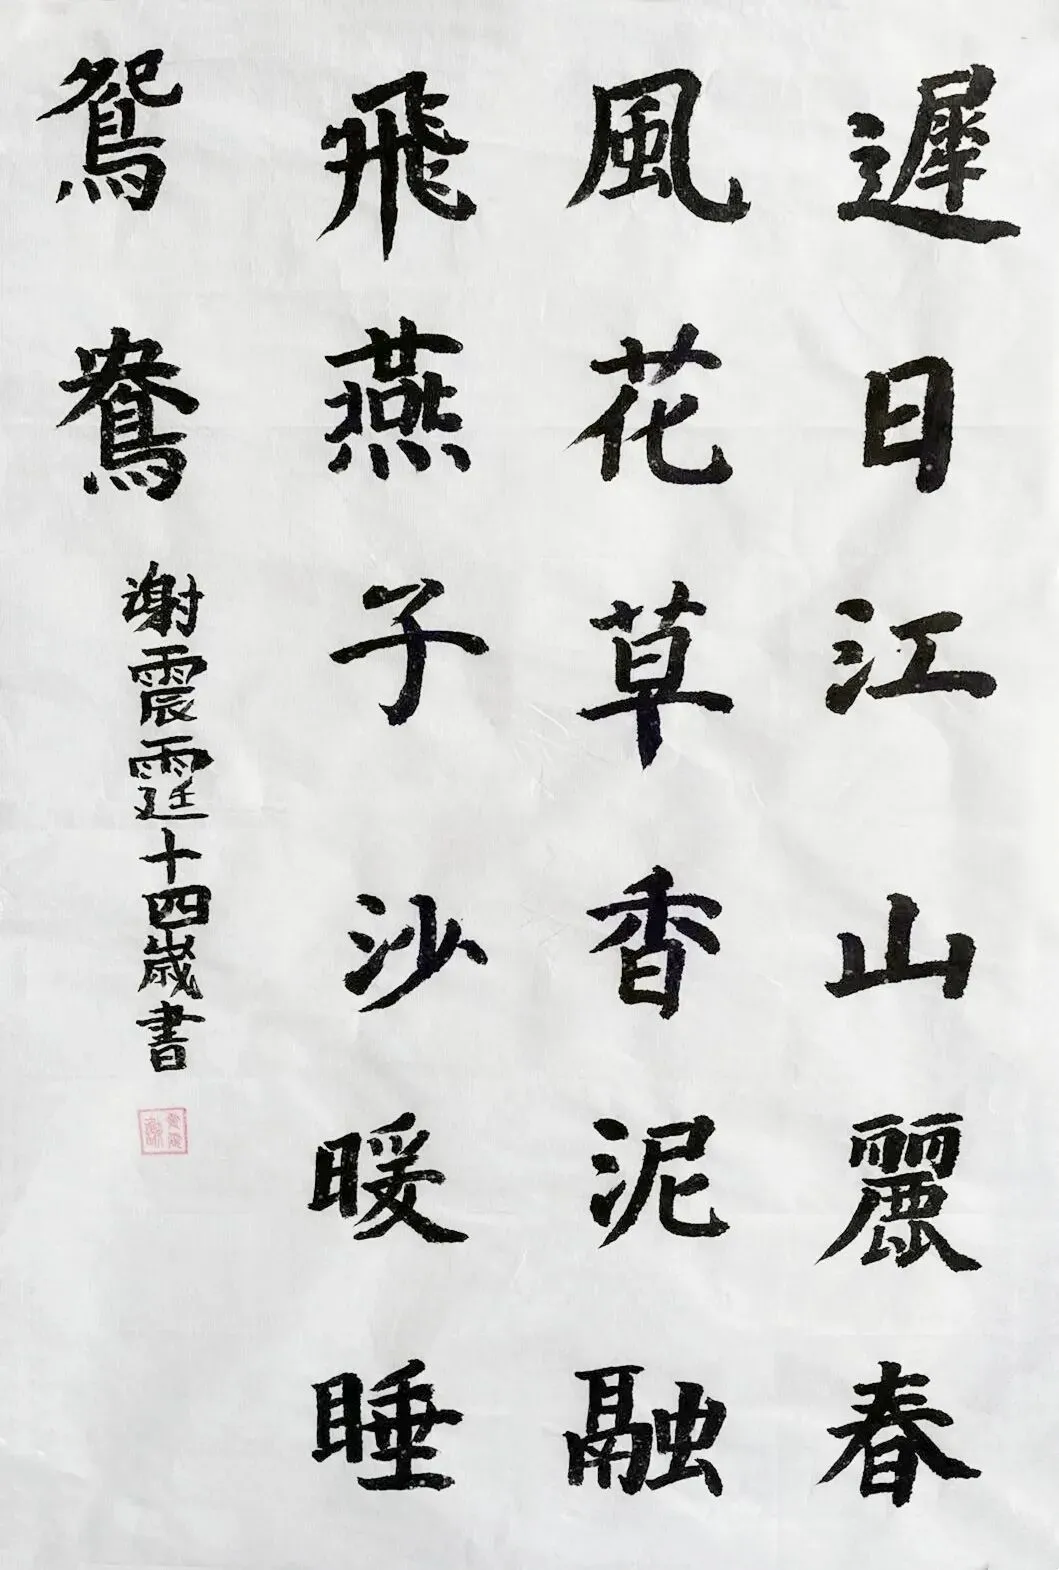 遲日江山麗春
風花草香泥融
飛燕子沙暖睡
鴛鴦
谢震霆十四歲書